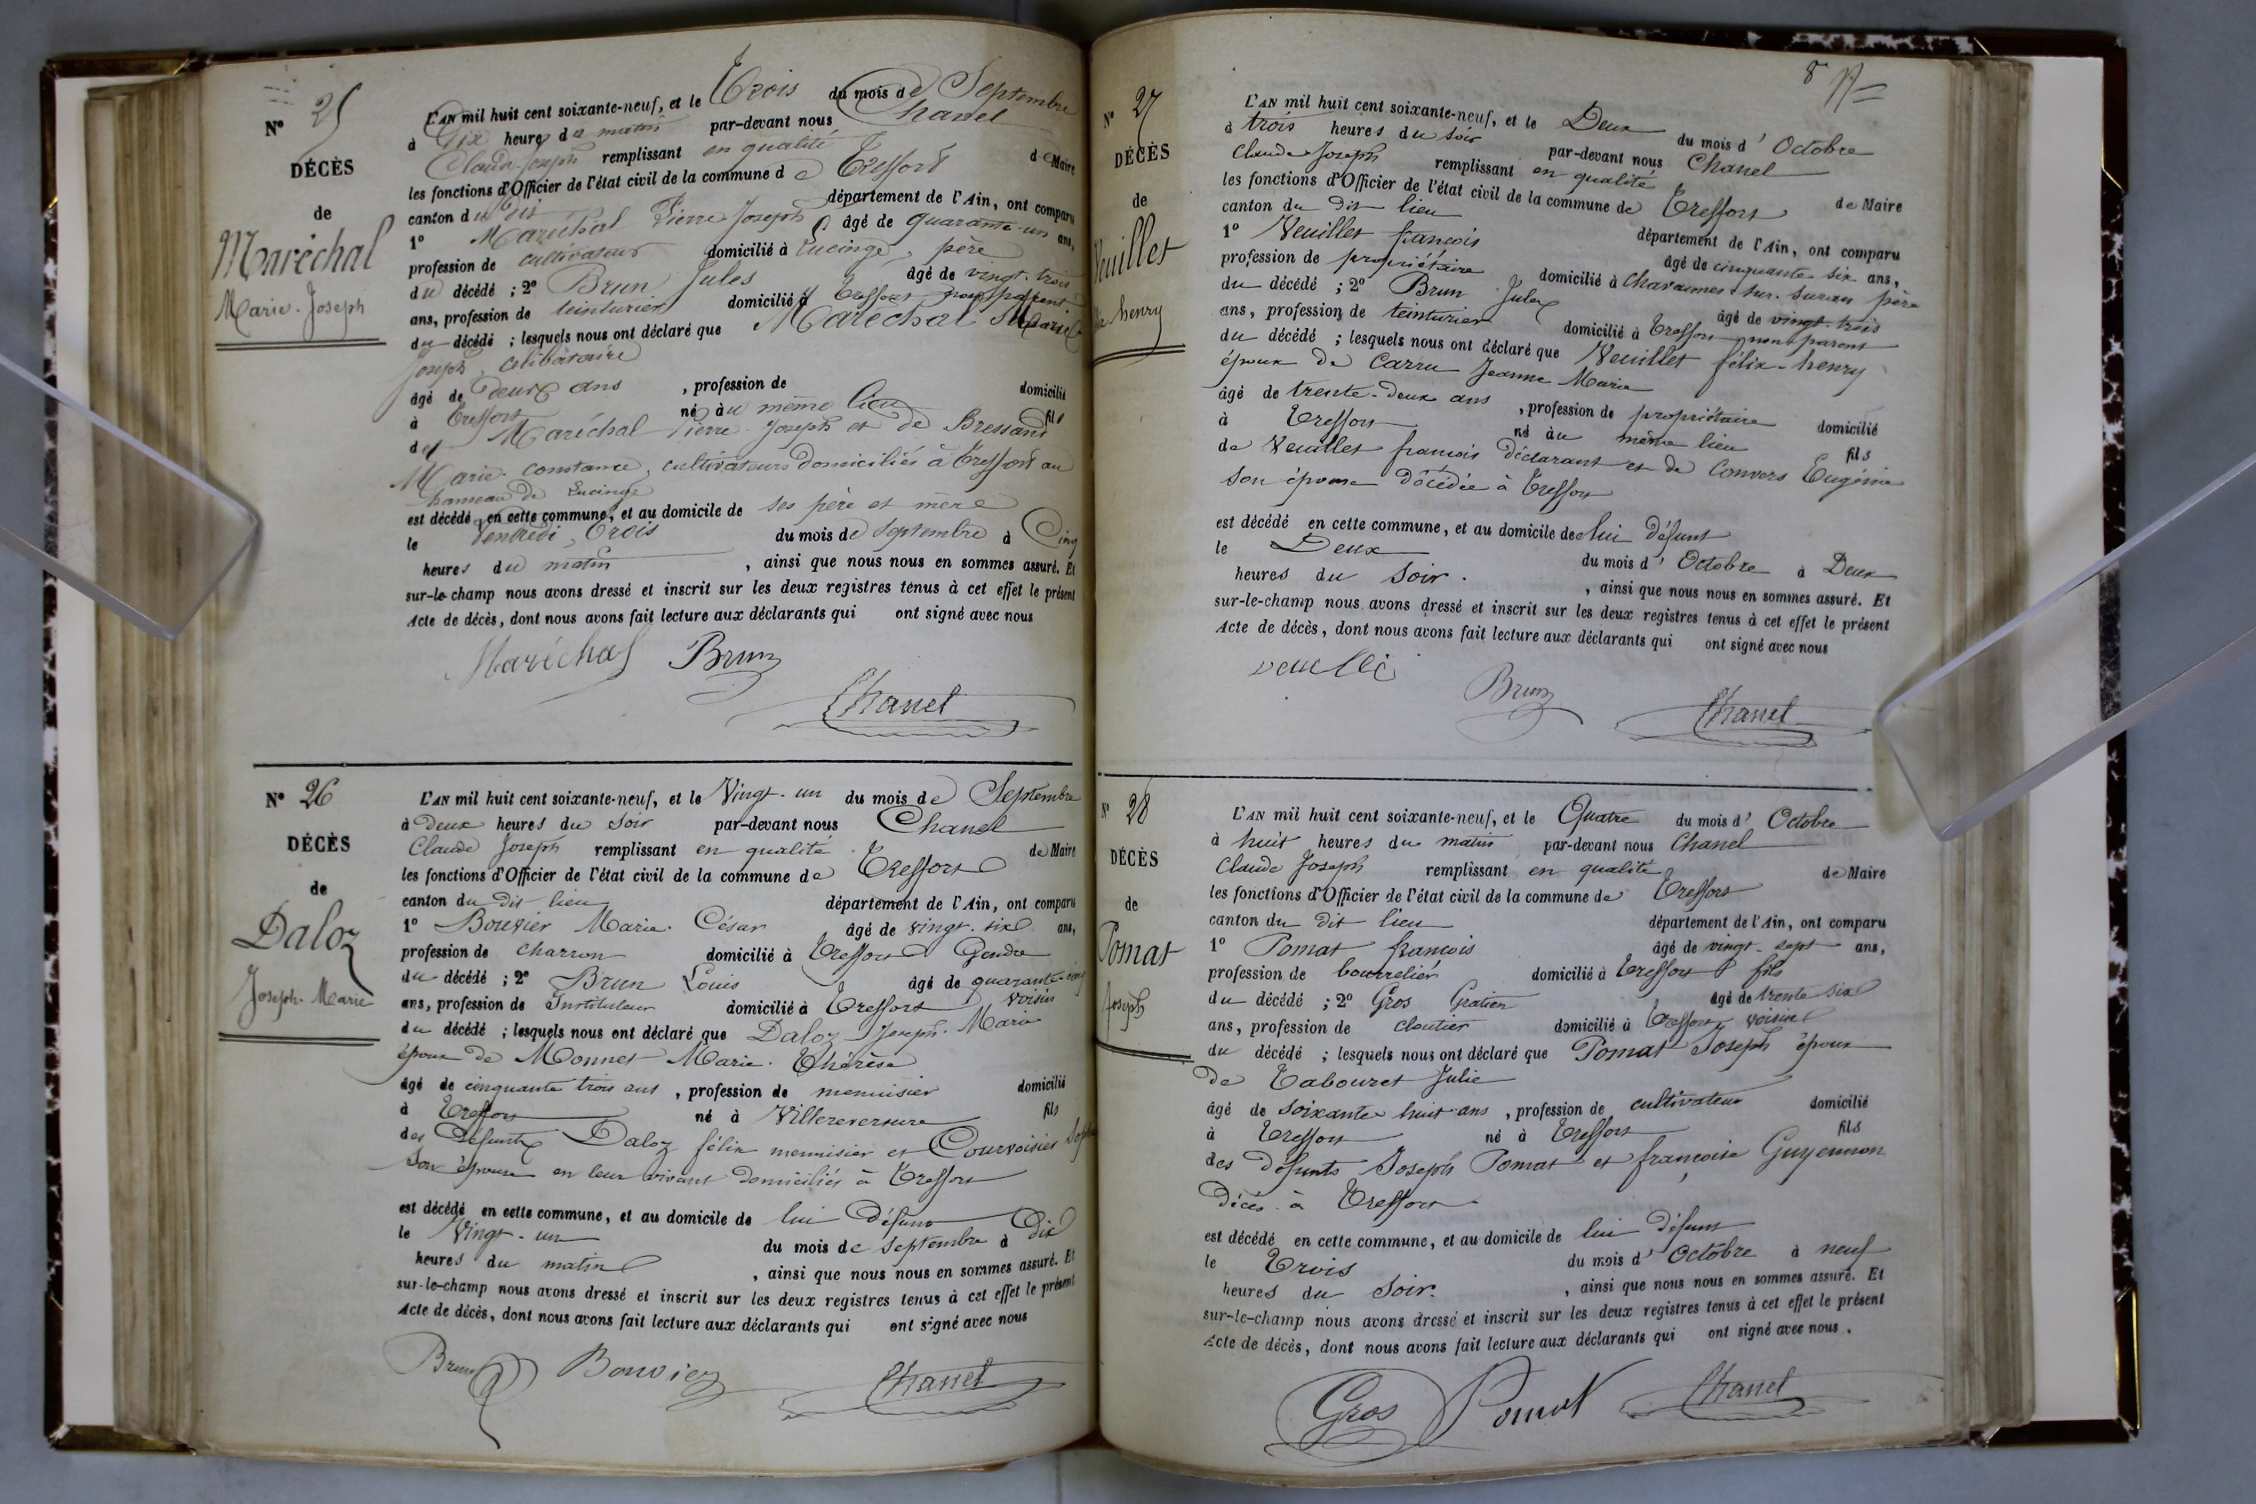 N° 25
DÉCÈS
de
Maréchal
Marie-Joseph
L'AN mil huit cent soixante-neuf, et le Trois du mois de Septembre
à Dix heures du matin par-devant nous Chanel
Claude-Joseph remplissant en qualité de Maire
les fonctions d'Officier de l'état civil de la commune de Treffort
canton du dit département de l'Ain, ont comparu
1° Maréchal Pierre Joseph âgé de quarante-un ans,
profession de cultivateur domicilié à Lucinge, père
du décédé ; 2° Brun Jules âgé de vingt-trois
ans, profession de teinturier domicilié à Treffort non parent
du décédé ; lesquels nous ont déclaré que Maréchal Marie
Joseph, célibataire
âgé de Deux ans , profession de domicilié
à Treffort né au même lieu fils
de Maréchal Pierre-Joseph et de Bressand
Marie-constance, cultivateurs domiciliés à Treffort au
hameau de Lucinge
est décédé en cette commune, et au domicile de ses père et mère
le Vendredi, Trois du mois de Septembre à Cinq
heures du matin , ainsi que nous nous en sommes assuré. Et
sur-le-champ nous avons dressé et inscrit sur les deux registres tenus à cet effet le présent
Acte de décès, dont nous avons fait lecture aux déclarants qui ont signé avec nous
Maréchal Brun
Chanel
N° 26
DÉCÈS
de
Daloz
Joseph-Marie
L'AN mil huit cent soixante-neuf, et le Vingt-un du mois de Septembre
à Deux heures du Soir par-devant nous Chanel
Claude Joseph remplissant en qualité de Maire
les fonctions d'Officier de l'état civil de la commune de Treffort
canton du dit lieu département de l'Ain, ont comparu
1° Bouvier Marie-César âgé de vingt-six ans,
profession de charron domicilié à Treffort Gendre
du décédé ; 2° Brun Louis âgé de quarante-cinq
ans, profession de Instituteur domicilié à Treffort voisin
du décédé ; lesquels nous ont déclaré que Daloz Joseph-Marie
époux de Monnet Marie-Thérèse
âgé de cinquante trois ans , profession de menuisier domicilié
à Treffort né à Villereversure fils
des Défunts Daloz félix menuisier et Courvoisier
son épouse en leur vivant domiciliés à Treffort
est décédé en cette commune, et au domicile de lui Défunt
le Vingt-un du mois de Septembre à Dix
heures du matin , ainsi que nous nous en sommes assuré. Et
sur-le-champ nous avons dressé et inscrit sur les deux registres tenus à cet effet le présent
Acte de décès, dont nous avons fait lecture aux déclarants qui ont signé avec nous
Brun Bouvier Chanel
8
N° 27
DÉCÈS
de
Veuillet
henry
L'AN mil huit cent soixante-neuf, et le Deux du mois d'Octobre
à trois heures du soir par-devant nous Chanel
Claude-Joseph remplissant en qualité de Maire
les fonctions d'Officier de l'état civil de la commune de Treffort
canton du dit lieu département de l'Ain, ont comparu
1° Veuillet françois âgé de cinquante-six ans,
profession de propriétaire domicilié à Chavannes-sur-Suran père
du décédé ; 2° Brun Jules âgé de vingt-trois
ans, profession de teinturier domicilié à Treffort non parent
du décédé ; lesquels nous ont déclaré que Veuillet félix-henry
époux de Carru Jeanne Marie
âgé de trente-deux ans , profession de propriétaire domicilié
à Treffort né au même lieu fils
de Veuillet françois déclarant et de Convers Eugénie
son épouse décédée à Treffort
est décédé en cette commune, et au domicile de lui défunt
le Deux du mois d'Octobre à Deux
heures du Soir. , ainsi que nous nous en sommes assuré. Et
sur-le-champ nous avons dressé et inscrit sur les deux registres tenus à cet effet le présent
Acte de décès, dont nous avons fait lecture aux déclarants qui ont signé avec nous
Brun
Chanel
N° 28
DÉCÈS
de
Pomat
Joseph
L'AN mil huit cent soixante-neuf, et le Quatre du mois d'Octobre
à huit heures du matin par-devant nous Chanel
Claude Joseph remplissant en qualité de Maire
les fonctions d'Officier de l'état civil de la commune de Treffort
canton du dit lieu département de l'Ain, ont comparu
1° Pomat françois âgé de vingt-sept ans,
profession de bourrelier domicilié à Treffort fils
du décédé ; 2° Gros Gratien âgé de trente six
ans, profession de cloutier domicilié à Treffort voisin
du décédé ; lesquels nous ont déclaré que Pomat Joseph époux
de Tabouret Julie
âgé de soixante huit ans , profession de cultivateur domicilié
à Treffort né à Treffort fils
des défunts Joseph Pomat et françoise Guyennon
Décès à Treffort
est décédé en cette commune, et au domicile de lui défunt
le Trois du mois d'Octobre à neuf
heures du Soir. , ainsi que nous nous en sommes assuré. Et
sur-le-champ nous avons dressé et inscrit sur les deux registres tenus à cet effet le présent
Acte de décès, dont nous avons fait lecture aux déclarants qui ont signé avec nous.
Gros Pomat Chanel